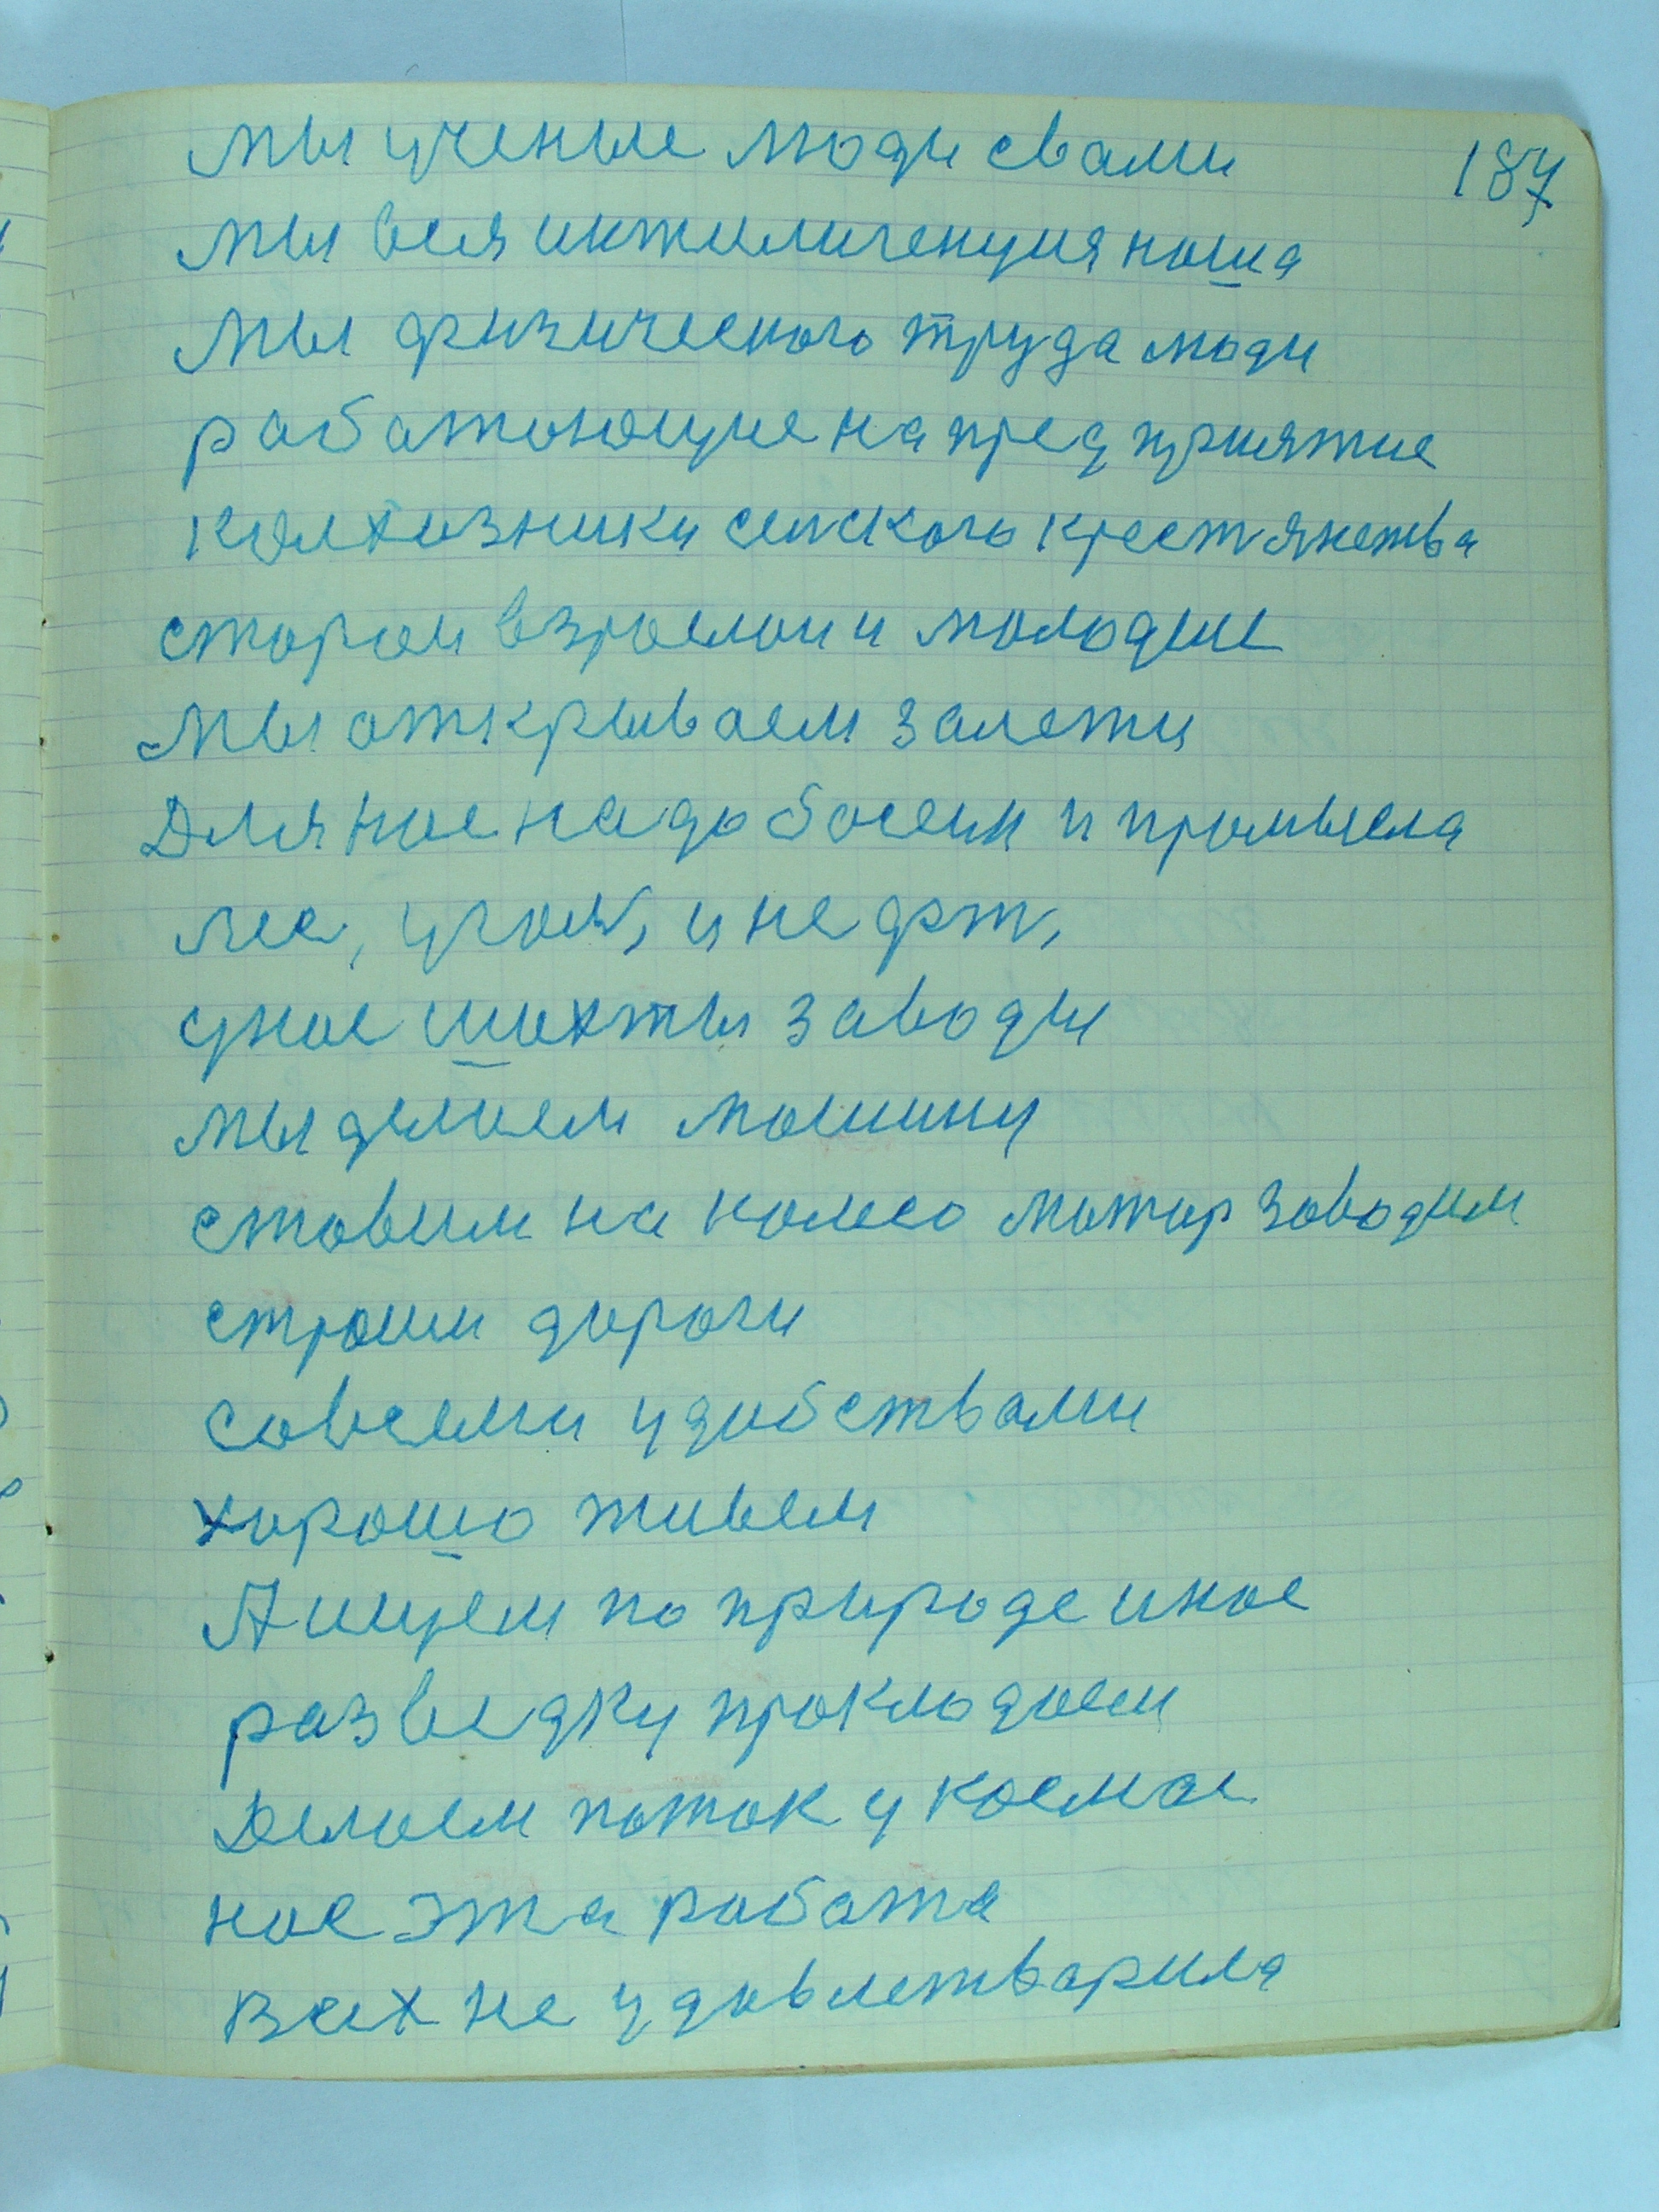 мы ученые люди свами
187
мы вся интилигенция наша
мы физического труда люди
работоющие на предприятие
колхозники селского крестянства
старои взрослои и молодые
мы аткрываем залежи
Для нас надобосем и промысла
лес, уголь, и нефт,
у нас шахты заводы
мы делаем машину
ставим на колесо мотор заводим
строим дороги
совсеми удобствами
хорошо живем
А ищем по природе у нас
разведку прокладоем
Делаем поток у космос
нас эта работа
всех не удовлетварила